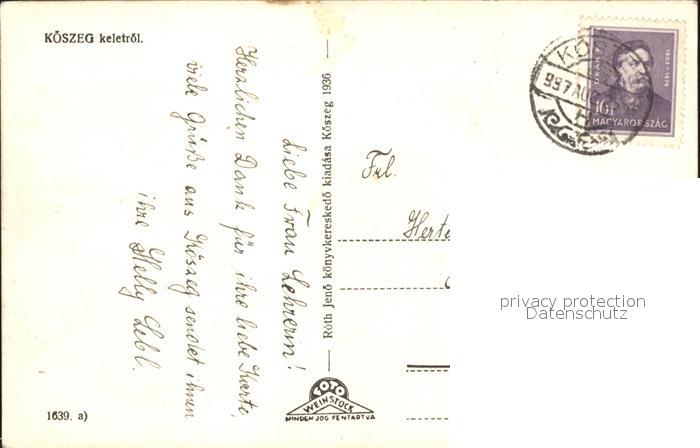 KŐSZEG keletről.
Liebe Frau Lehrerin!
Herzlichen Dank für ihre liebe Karte,
viele Grüße aus Kőszeg sendet ihnen
ihre Lebl.
1639. a)
Róth Jenő könyvkereskedő kiadása Kőszeg 1936.
FOTO
WEINSTOCK
MINDEN JOG FENTARTVA
DEÁK F.
1803-1876
16 f
MAGYARORSZÁG
Frl.
privacy protection
Datenschutz